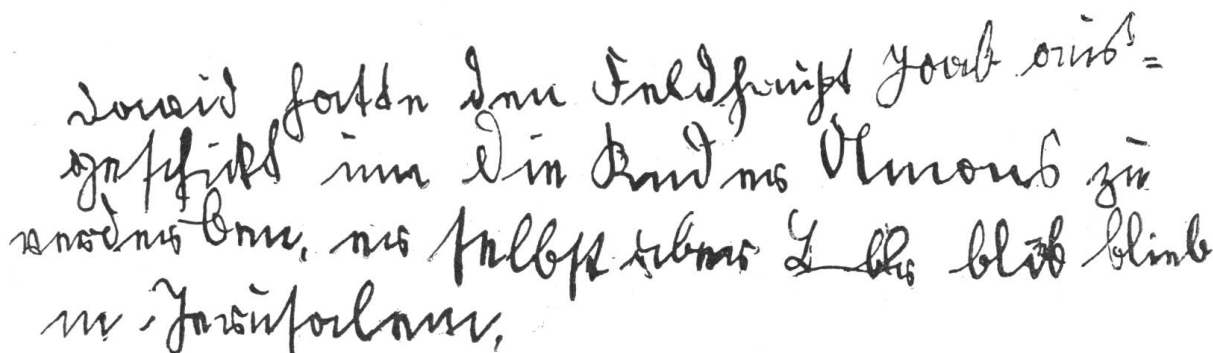 David hatte den Feldhaupt Joab aus=
geschickt um die Kinder Amons zu
verderben, er selbst aber blieb
in Jerusalem,